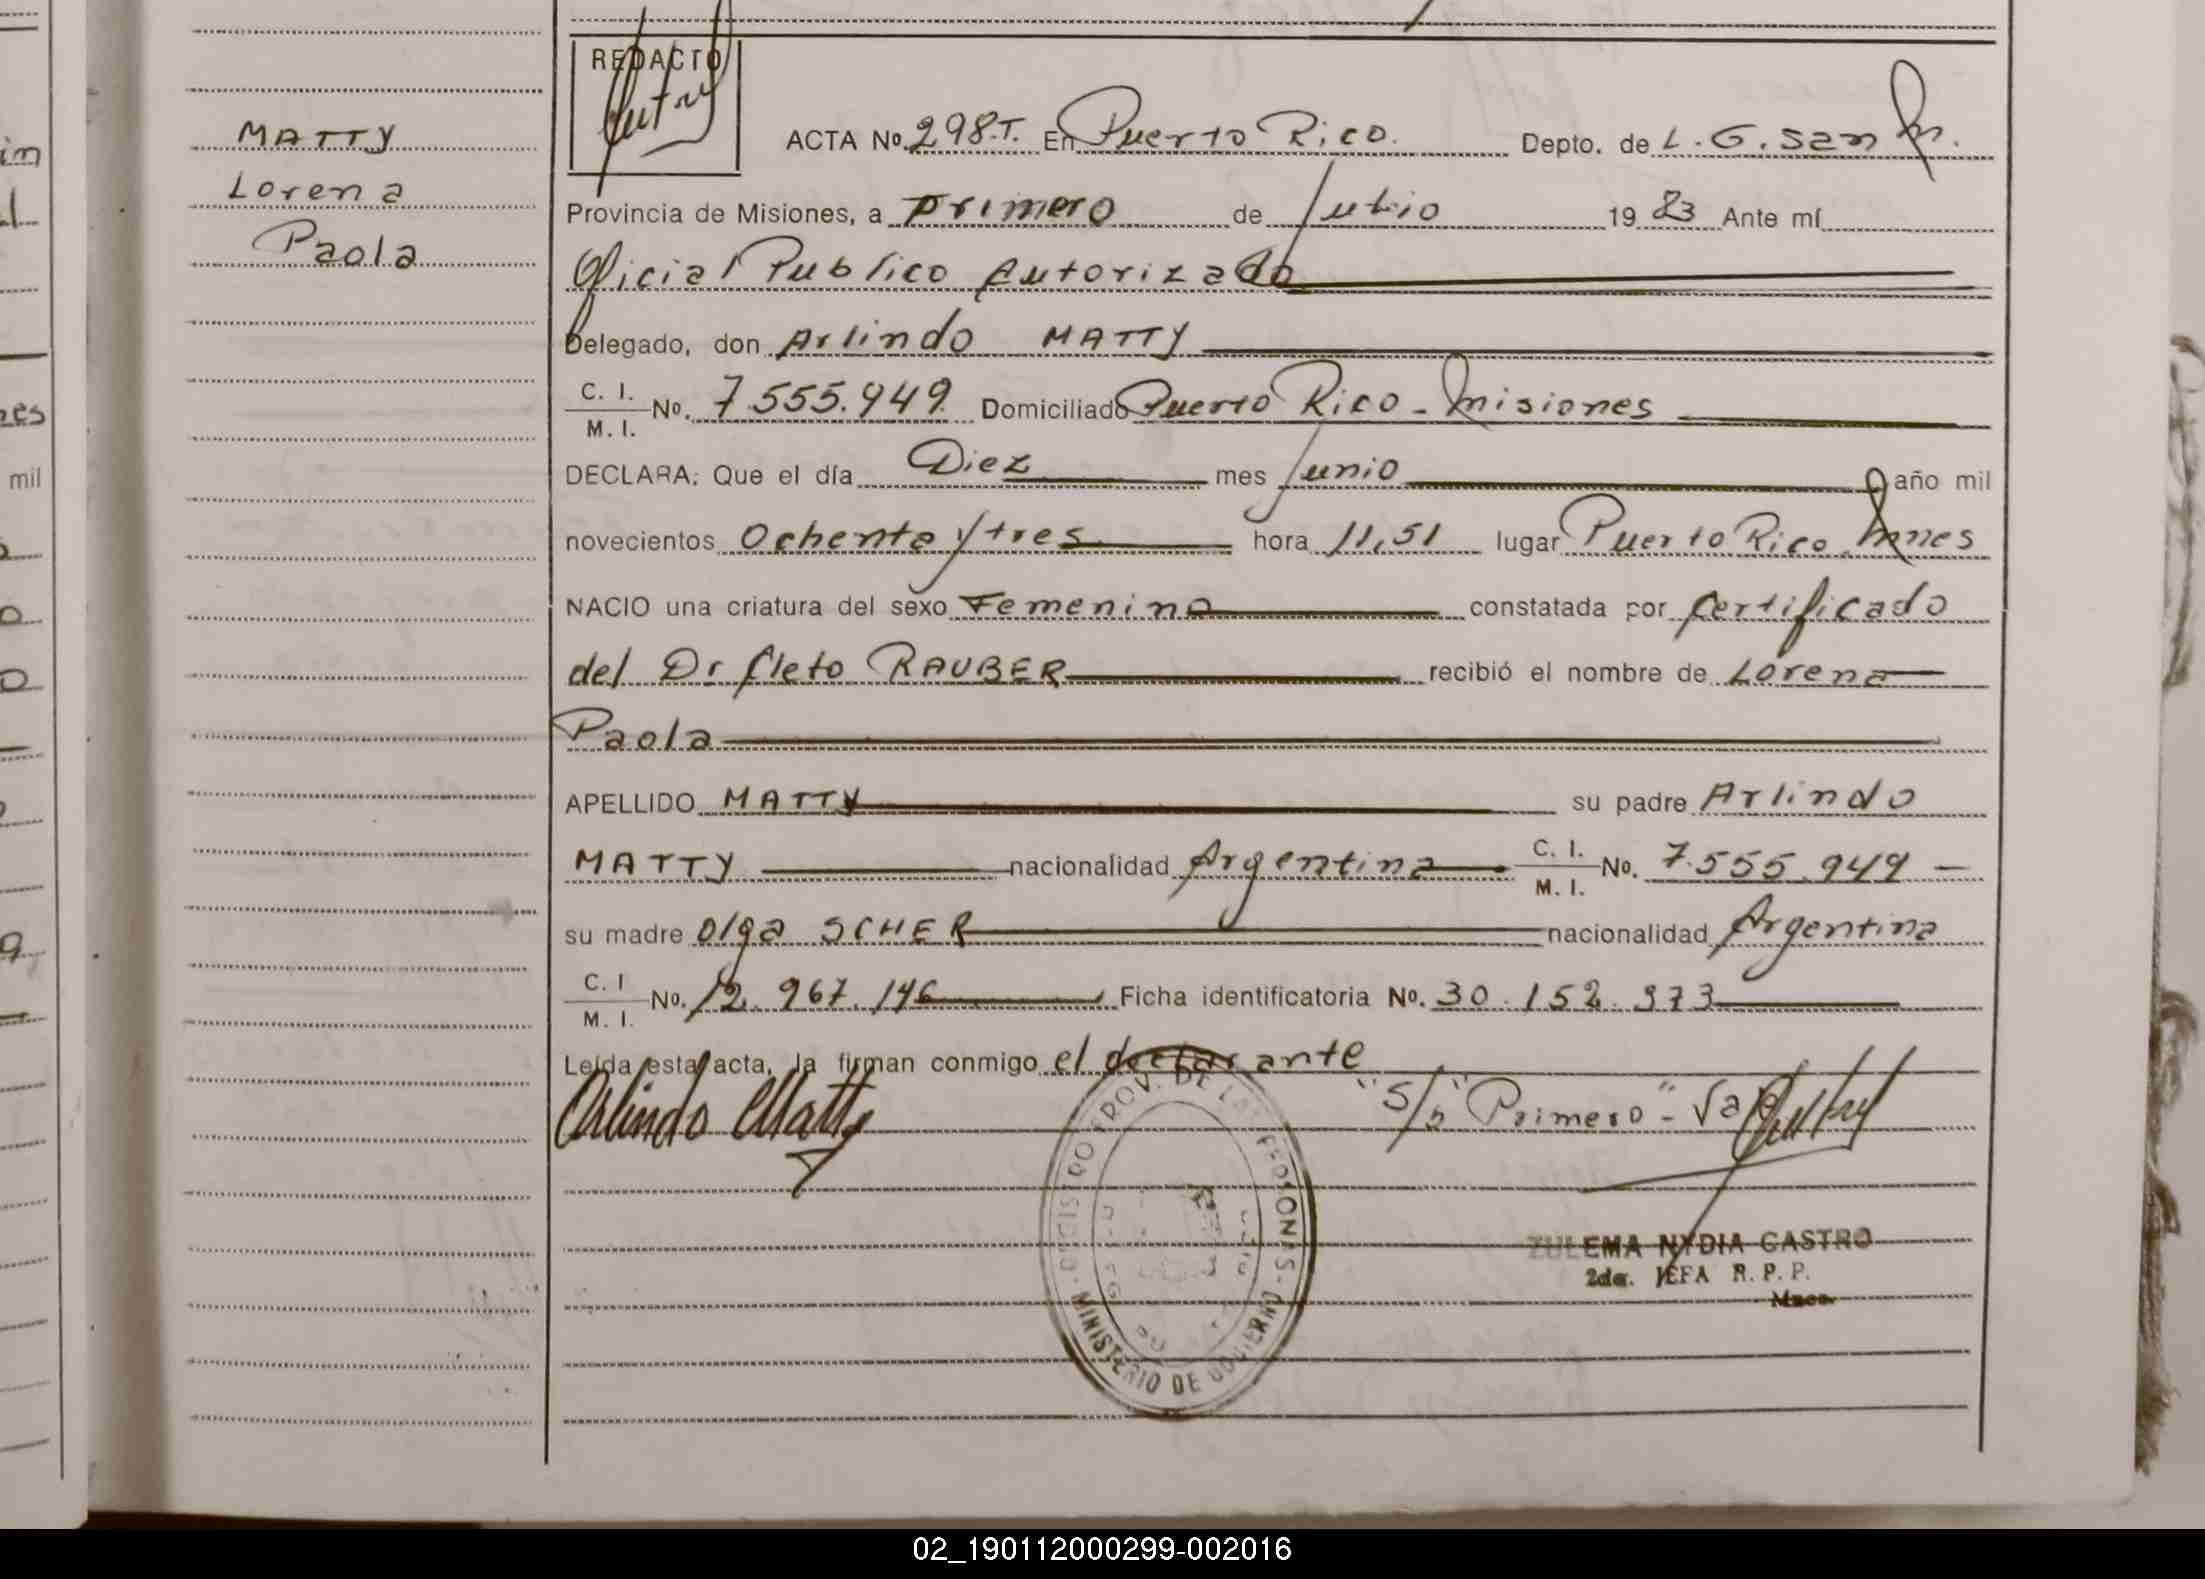 MATTY
Lorena
Paola
REDACTO
ACTA Nº. 298.T. En Puerto Rico. Depto. de L. G. San M.
Provincia de Misiones, a primero de Julio 1983 Ante mí
Oficial Publico Autorizado
Delegado, don Arlindo MATTY
C. I. / M. I. Nº. 7.555.949. Domiciliado Puerto Rico - Misiones
DECLARA: Que el día Diez mes Junio año mil
novecientos Ochenta y tres hora 11,51 lugar Puerto Rico. Mnes
NACIO una criatura del sexo Femenino constatada por Certificado
del Dr Cleto RAUBER recibió el nombre de Lorena
Paola
APELLIDO MATTY su padre Arlindo
MATTY nacionalidad Argentina C. I. / M. I. Nº. 7.555.949 —
su madre Olga SCHER nacionalidad Argentina
C. I / M. I. Nº. 12.967.146 Ficha identificatoria Nº. 30.152.973
Leída esta acta, la firman conmigo el declarante
Arlindo Matty
"S/b" "Primero" - Vale
REGISTRO PROV. DE LAS PERSONAS
MINISTERIO DE GOBIERNO
ZULEMA NYDIA CASTRO
2da. JEFA R. P. P.
Mnes.
mil
02_190112000299-002016